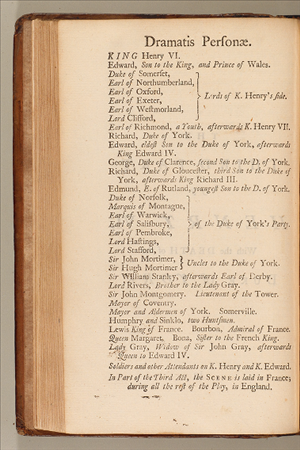 Dramatis Personæ.
KING Henry VI.
Edward, Son to the King, and Prince of Wales.
Duke of Somerset,
Earl of Northumberland,
Earl of Oxford,
Earl of Exeter,
Earl of Westmorland,
Lord Clifford,
Lords of K. Henry's side.
Earl of Richmond, a Youth, afterwards K. Henry VII.
Richard, Duke of York.
Edward, eldest Son to the Duke of York, afterwards
King Edward IV.
George, Duke of Clarence, second Son to the D. of York.
Richard, Duke of Gloucester, third Son to the Duke of
York, afterwards King Richard III.
Edmund, E. of Rutland, youngest Son to the D. of York.
Duke of Norfolk,
Marquis of Montague,
Earl of Warwick,
Earl of Salisbury,
Earl of Pembroke,
Lord Hastings,
Lord Stafford,
of the Duke of York's Party.
Sir John Mortimer,
Sir Hugh Mortimer
Uncles to the Duke of York.
Sir William Stanly, afterwards Earl of Derby.
Lord Rivers, Brother to the Lady Gray.
Sir John Montgomery. Lieutenant of the Tower.
Mayor of Coventry.
Mayor and Aldermen of York. Somerville.
Humphry and Sinklo, two Huntsmen.
Lewis King of France. Bourbon, Admiral of France.
Queen Margaret. Bona, Sister to the French King.
Lady Gray, Widow of Sir John Gray, afterwards
Queen to Edward IV.
Soldiers and other Attendants on K. Henry and K. Edward.
In Part of the Third Act, the SCENE is laid in France;
during all the rest of the Play, in England.